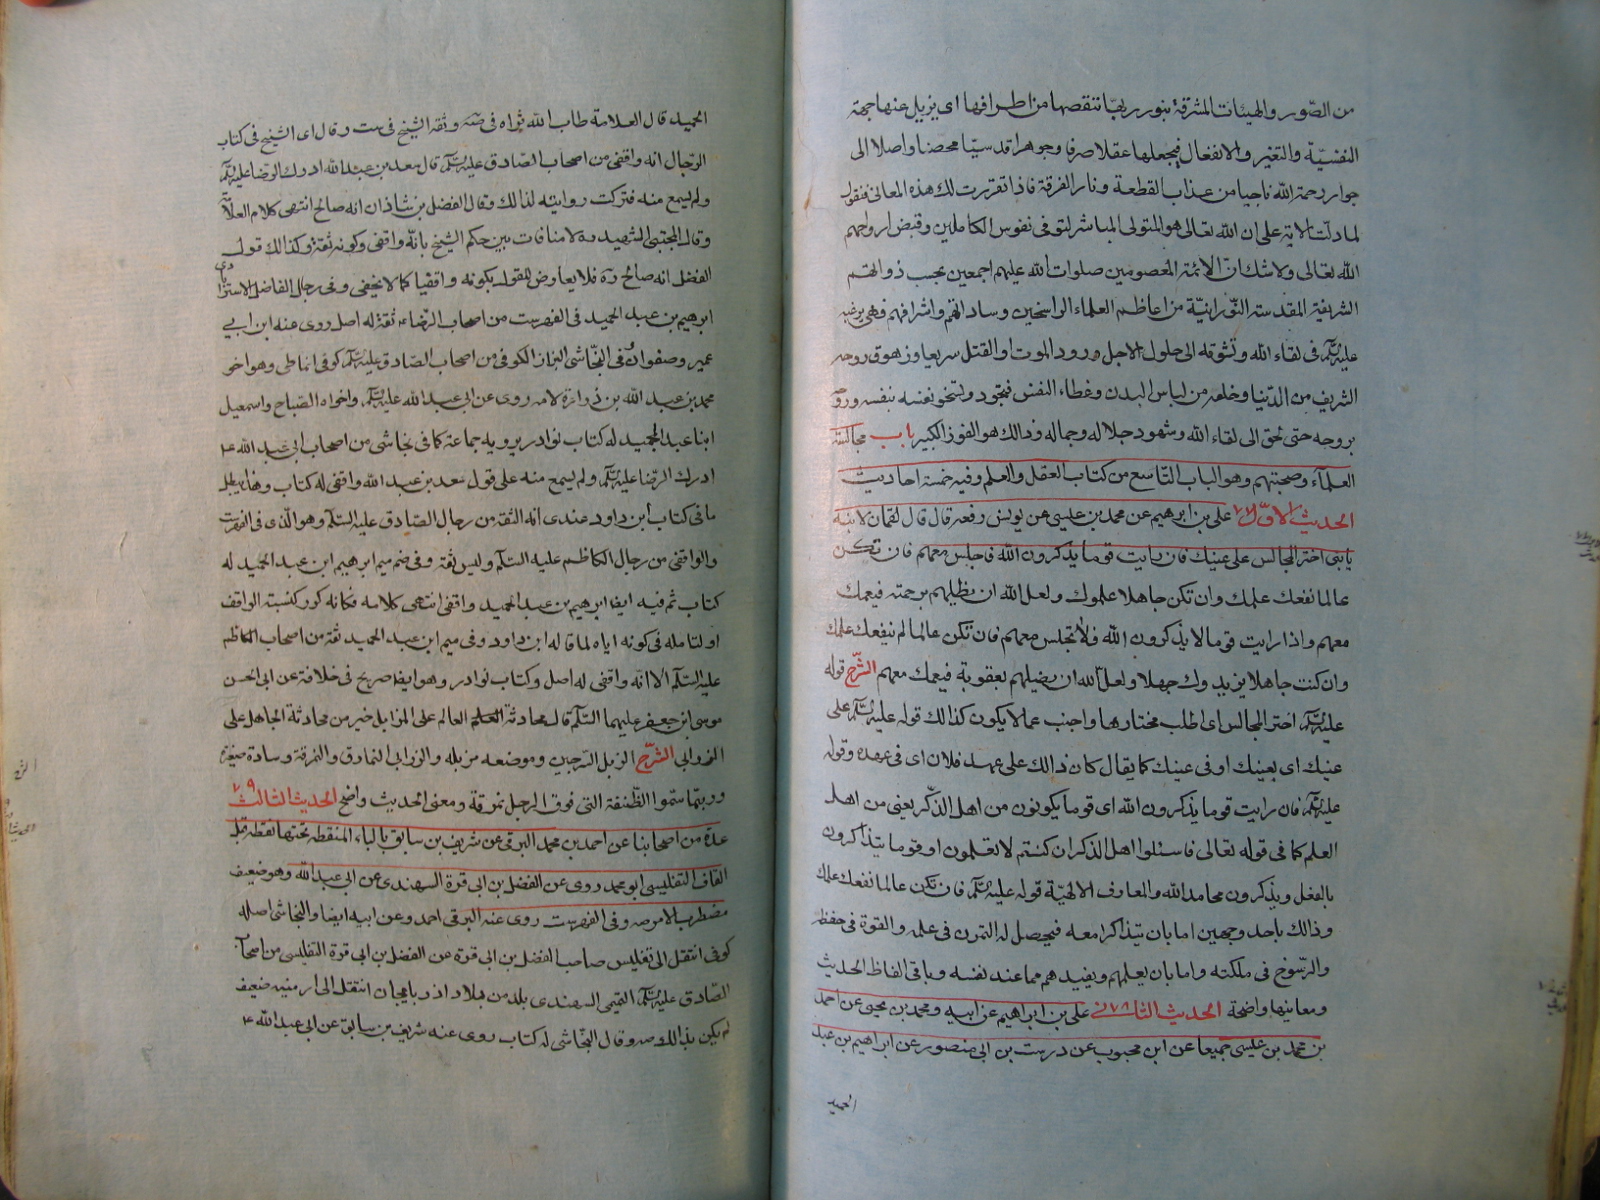 من الصّور والهيئات المشرقة بنور ربها تنقصها من اطرافها اى يزيل عنها جهة
النفسيّة والتغير والانفعال فيجعلها عقلا صرفا وجوهرا قدسيّا محضا واصلا الى
جوار رحمة الله ناجيا من عذاب القطعة ونار الفرقة فاذا تقررت لك هذه المعانى فنقول
لما دلّت الاية على ان الله تعالى هو المتولى المباشر لتوفى نفوس الكاملين وقبض ارواحهم
الله تعالى ولا شك انّ الائمة المعصومين صلوات الله عليهم اجمعين بحسب ذواتهم
الشريفة المقدسة النّورانيّة من اعاظم العلماء الراسخين وساداتهم واشرافهم فهى يرغبه
عليه السلم فى لقاء الله وتشوقه الى حلول الاجل وورود الموت او القتل سريعا وزهوق روحه
الشريف من الدّنيا وخلعه من لباس البدن وغطاء النفس فيجود ويسخو نفسه بنفسه وروحه
بروحه حتى تحق الى لقاء الله وشهود جلاله وجماله وذالك هو الفوز الكبير باب مجالسة
العلمآء وصحبتهم وهو الباب التّاسع من كتاب العقل والعلم وفيه خمسة احاديث
الحديث الاوّل ٧٧ على بن ابرهيم عن محمد بن عيسى عن يونس رفعه قال قال لقمان لابنه
يا بنى اختر المجالس على عينك فان رايت قوما يذكرون الله فاجلس معهم فان تكن
عالما نفعك علمك وان تكن جاهلا علموك ولعل الله ان يظلهم برحمته فيعمك
معهم واذا رايت قوما لا يذكرون الله فلا تجلس معهم فان تكن عالما لم ينفعك علمك
وان كنت جاهلا يزيدوك جهلا ولعل الله ان يضلهم بعقوبة فيعمك معهم الشّرح قوله
عليه السلم اختر المجالس اى اطلب مختارها واجتنب عما لا يكون كذالك قوله عليه السلم على
عينك اى بعينك او فى عينك كما يقال كان ذالك على عهد فلان اى فى عهده وقوله
عليه السلم فان رايت قوما يذكرون الله اى قوما يكونون من اهل الذّكر يعنى من اهل
العلم كما فى قوله تعالى فاسئلوا اهل الذكر ان كنتم لا تعلمون او قوما يتذاكرون
بالفعل ويذكرون محامد الله والمعارف الالهيّة قوله عليه السلم فان تكن عالما نفعك علمك
وذالك باحد وجهين اما بان يتذاكر معه فيحصل له التمرن فى علمه والقوة فى حفظه
والرّسوخ فى ملكته واما بان يعلمهم ويفيدهم مما عند نفسه وباقى الفاظ الحديث
ومعانيها واضحة الحديث الثانى ٧٨ على بن ابراهيم عن ابيه ومحمد بن يحيى عن احمد
بن محمد بن عيسى جميعا عن ابن محبوب عن درست بن ابى منصور عن ابراهيم بن عبد
الحميد
الحميد قال العلامة طاب الله ثراه فى صه وثقه الشيخ فى ست وقال اى الشيخ فى كتاب
الرّجال انه واقفى من اصحاب الصّادق عليه السلم قال سعد بن عبد الله ادرك الرضا عليه السلم
ولم يسمع منه فتركت روايته لذالك وقال الفضل بن شاذان انه صالح انتهى كلام العلّا
وقال المجتبى الشهيد ره لا منافات بين حكم الشيخ بانّه واقفى وكونه ثقة وكذالك قول
الفضل انه صالح ره فلا يعارض القول بكونه واقفيا كما لا يخفى وفى رجال الفاضل الاسترا دى
ابرهيم بن عبد الحميد فى الفهرست من اصحاب الرّضاء ثقة له اصل روى عنه ابن ابى
عمير وصفوان فى النّجاشى البزاز الكوفى من اصحاب الصّادق عليه السلم كوفى انماطى وهو اخو
محمد بن عبد الله بن زرارة لامه روى عن ابى عبد الله عليه السلم واخواه الصّباح واسمعيل
ابنا عبد الحميد له كتاب نوادر يرويه جماعة كما فى نجاشى من اصحاب ابى عبد الله ع
ادرك الرّضا عليه السلم ولم يسمع منه على قول سعد بن عبد الله واقفى له كتاب وهذا يبطل
ما فى كتاب ابن داود عندى انه الثقة من رجال الصّادق عليه السّلم وهو الّذى فى الفهرست
والواقفى من رجال الكاظم عليه السّلم وليس بثقة وفى ضم ميم ابرهيم ابن عبد الحميد له
كتاب ثم فيه ايضا ابرهيم بن عبد الحميد واقفى انتهى كلامه فكانه كرر كنسبته الواقف
او لتامله فى كونه اياه لما قاله ابن داود وفى ميم ابن عبد الحميد ثقة من اصحاب الكاظم
عليه السّلم الا انّه واقفى له اصل وكتاب نوادر وهو ايضا صريح فى خلافة عن ابى الحسن
موسى ابن جعفر عليهما السّلم قال محادثة العالم على المزابل خير من محادثة الجاهل على
الزرابى الشّرح الزبل السّرجين وموضعه مزبله والزرابى النمارق والنمرقة وسادة صغيرة
وربّما سمّوا الطّنفة التى فوق الرحل نمرقة ومعنى الحديث واضح الحديث الثالث ٧٩
عدة من اصحابنا عن احمد بن محمد البرقى عن شريف بن سابق بالباء المنقطة تحتها نقطة قبل
القاف التفليسى ابو محمد روى عن الفضل بن ابى قرة السهندى عن ابى عبد الله وهو ضعيف
مضطرب الامر صه وفى الفهرست روى عنه البرقى احمد وعن ابيه ايضا والنجاشى اصله
كوفى انتقل الى تفليس صاحب الفضل بن ابى قرة عن الفضل بن ابى قرة التفليسى من اصحا
الصّادق عليه السلم التميمى السهندى بلد من بلاد اذربايجان انتقل الى ارمنيه ضعيف
لم يكن بذالك صه وقال النّجاشى له كتاب روى عنه شريف بن سابق عن ابى عبد الله ع